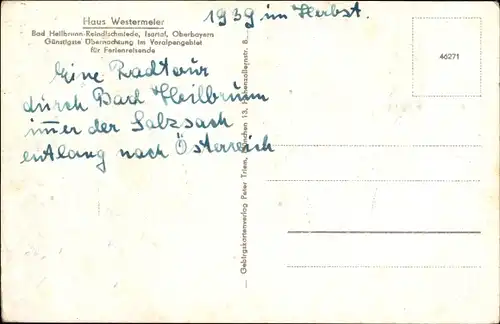 Haus Westermeier
Bad Heilbrunn-Reindlschmiede, Isartal, Oberbayern
Günstigste Übernachtung im Voralpengebiet
für Ferienreisende
1939 im Herbst.
46271
Eine Radtour
durch Bad Heilbrunn
immer der Salzsach
entlang nach Österreich
— Gebirgskartenverlag Peter Triem, München 13, Hohenzollernstr. 8 —